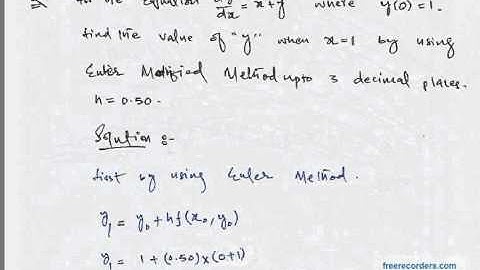 for the equation dy/dx = x+y where y(0)=1.
find the value of "y" when x=1 by using
Euler Modified Method upto 3 decimal places.
h = 0.50.
Solution :-
first by using Euler Method.
y₁ = y₀ + hf(x₀, y₀)
y₁ = 1 + (0.50)×(0+1)
freerecorders.com